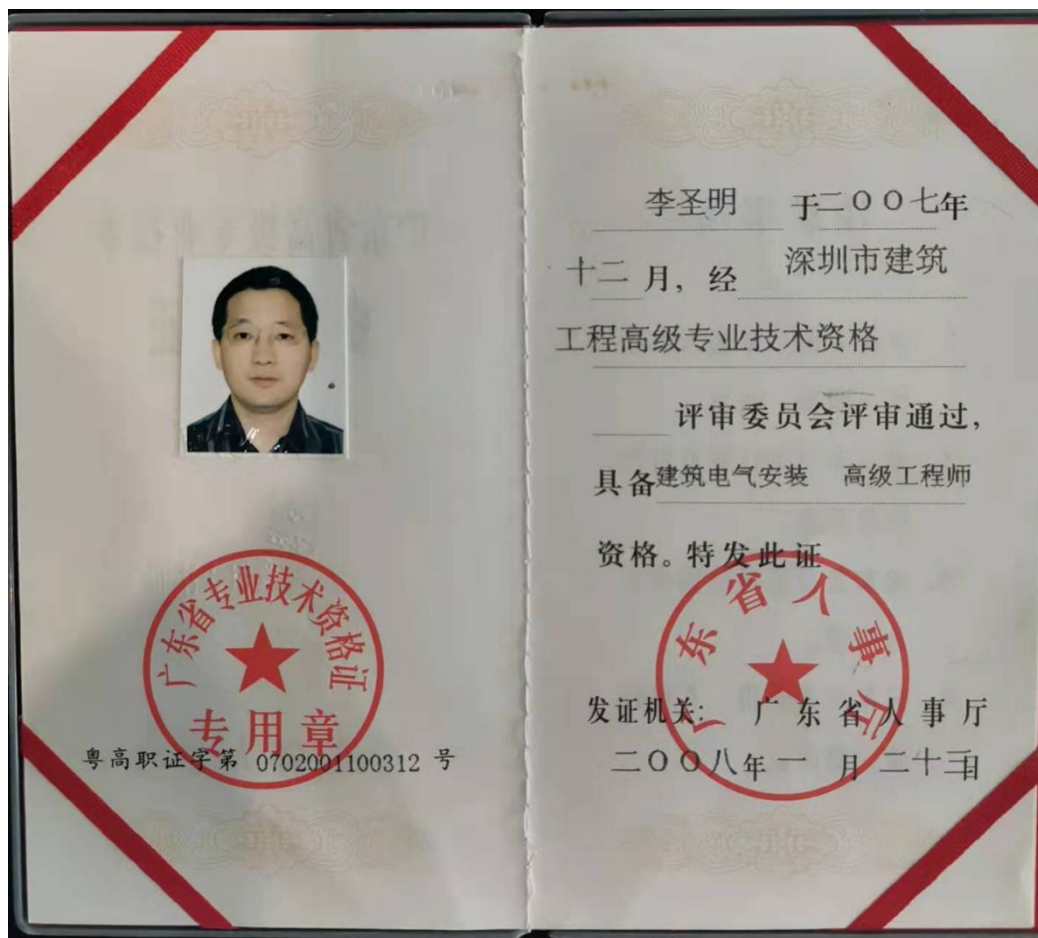 广东省专业技术资格证
专用章
粤高职证字第 0702001100312 号
李圣明 于二〇〇七年
十二月，经 深圳市建筑
工程高级专业技术资格
评审委员会评审通过，
具备建筑电气安装 高级工程师
资格。特发此证
广东省人事厅
发证机关：广东省人事厅
二〇〇八年一月二十三日